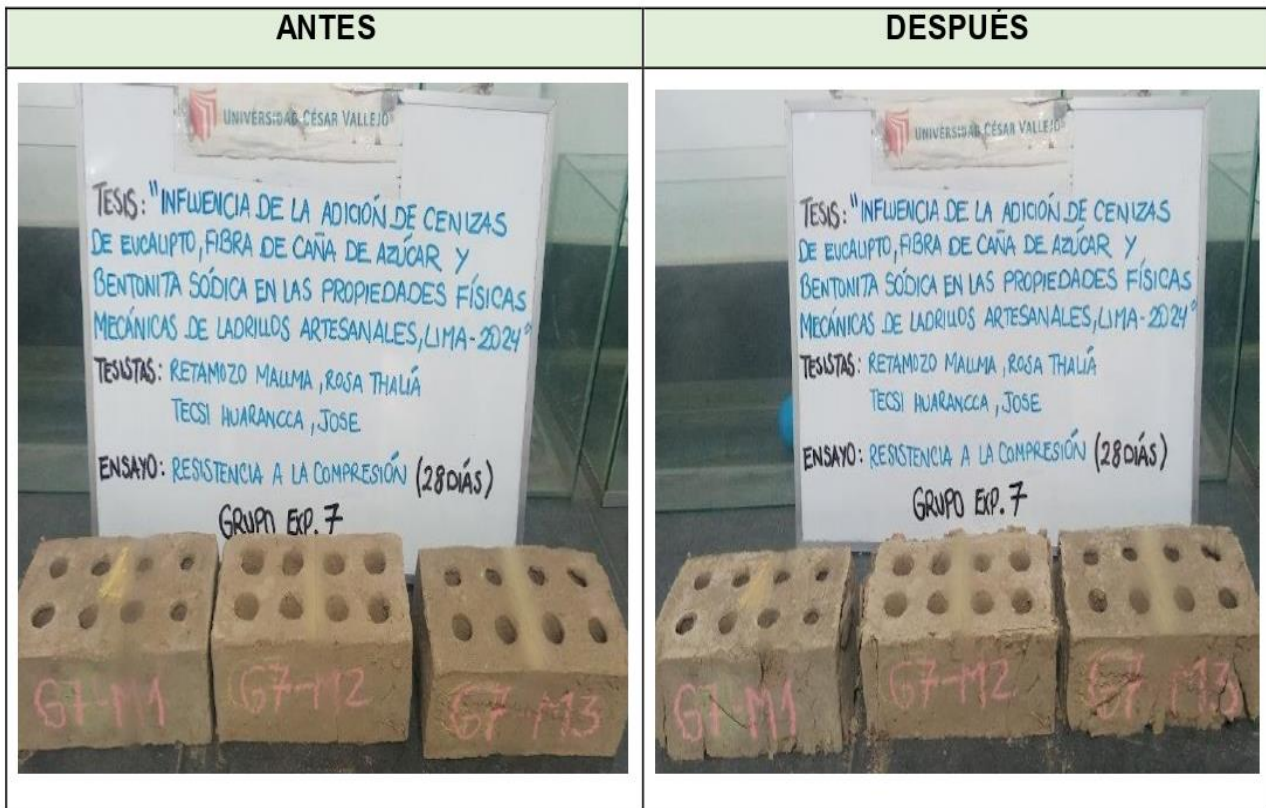 ANTES
DESPUÉS
UNIVERSIDAD CÉSAR VALLEJO
TESIS: "INFLUENCIA DE LA ADICIÓN DE CENIZAS
DE EUCALIPTO, FIBRA DE CAÑA DE AZÚCAR Y
BENTONITA SÓDICA EN LAS PROPIEDADES FÍSICAS
MECÁNICAS DE LADRILLOS ARTESANALES, LIMA-2024"
TESISTAS: RETAMOZO MALLMA, ROSA THALÍA
TECSI HUARANCCA, JOSE
ENSAYO: RESISTENCIA A LA COMPRESIÓN (28 DÍAS)
GRUPO EXP. 7
G7-M1
G7-M2
G7-M3
UNIVERSIDAD CÉSAR VALLEJO
TESIS: "INFLUENCIA DE LA ADICIÓN DE CENIZAS
DE EUCALIPTO, FIBRA DE CAÑA DE AZÚCAR Y
BENTONITA SÓDICA EN LAS PROPIEDADES FÍSICAS
MECÁNICAS DE LADRILLOS ARTESANALES, LIMA-2024"
TESISTAS: RETAMOZO MALLMA, ROSA THALÍA
TECSI HUARANCCA, JOSE
ENSAYO: RESISTENCIA A LA COMPRESIÓN (28 DÍAS)
GRUPO EXP. 7
G7-M1
G7-M2
G7 M3